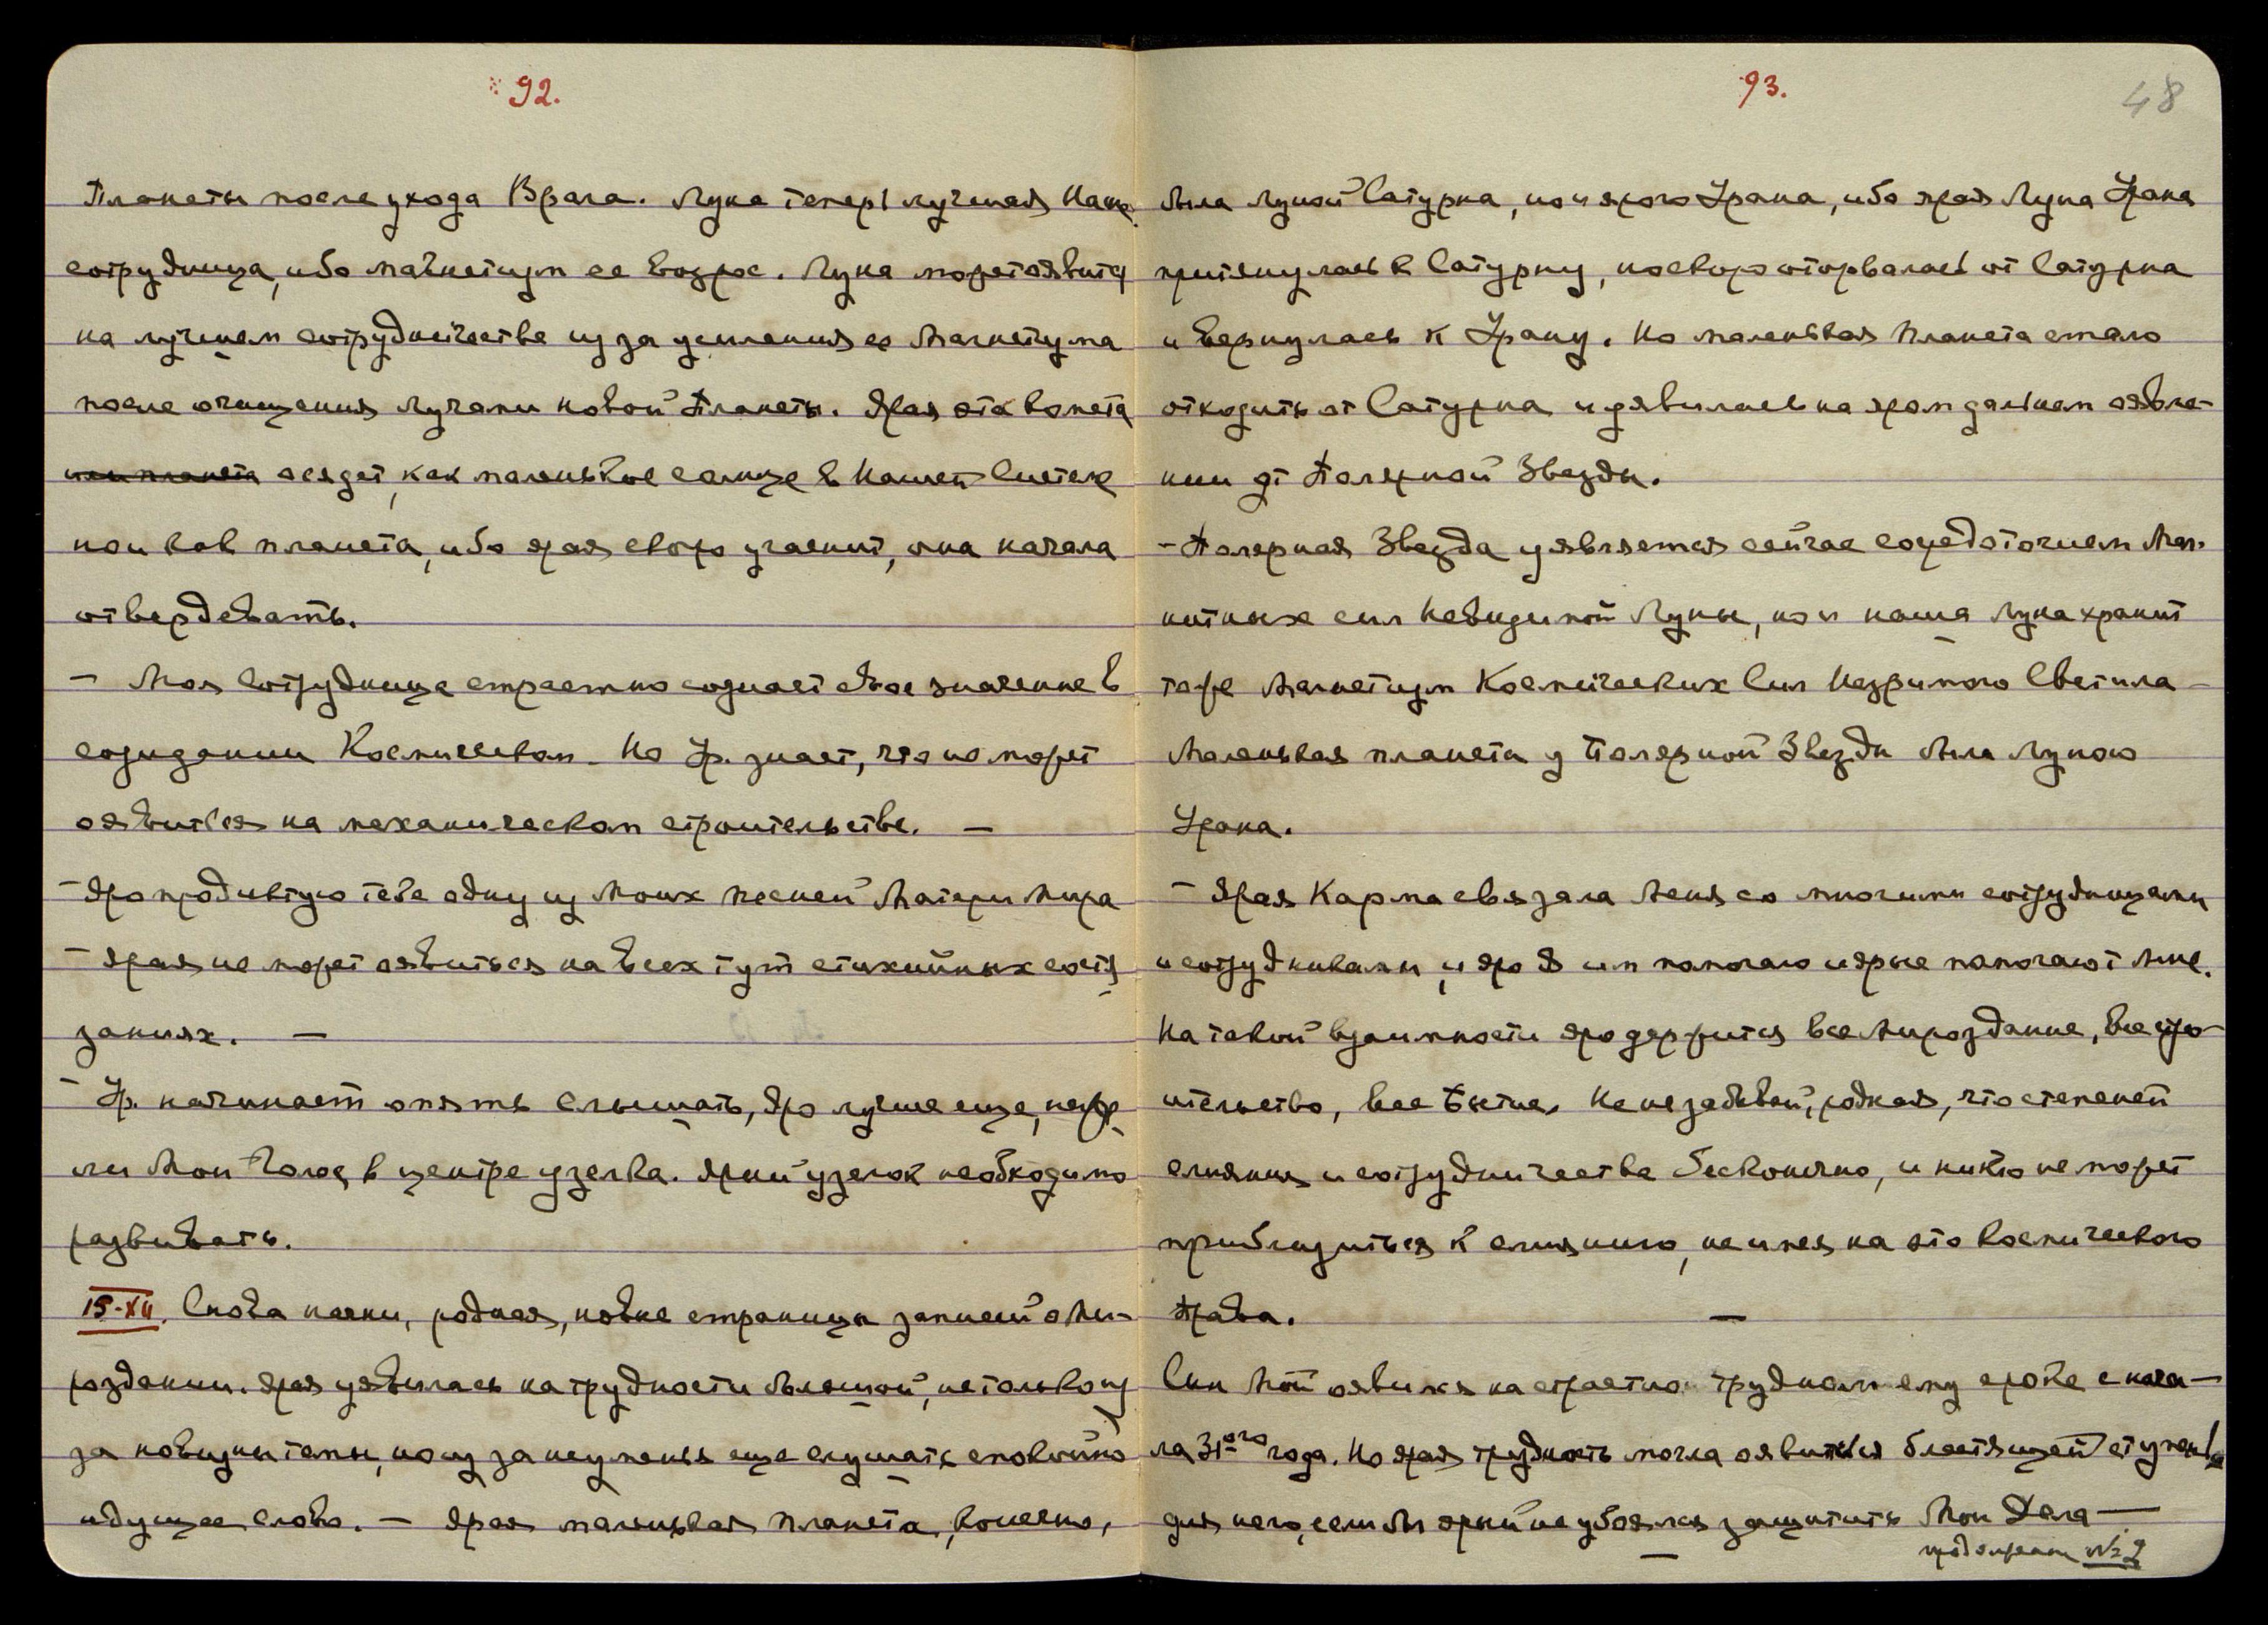 92.
Планеты после ухода Врага. Луна теперь лучшая Наша
сотрудница, ибо магнетизм ее возрос. Луна может оявиться
на лучшем сотрудничестве из за усиления ее Магнетизма
после очищения лучами новой Планеты. Ярая эта комета
или планета осядет, как маленькое солнце в Нашей Системе
но и как планета, ибо ярая скоро угаснит, она начала
отвердевать.
— Моя Сотрудница страстно сознает свое значение в
созидании Космическом. Но Ур. знает, что не может
оявиться на механическом строительстве. —
— Яро продиктую тебе одну из Моих песней Матери Мира
— Ярая не может оявиться на всех тут стихийных состя-
заниях. —
— Ур. начинает опять слышать, яро лучше еще, неже-
ли Мой Голос в центре узелка. Яркий узелок необходимо
развивать.
15-XII. Снова начни, родная, новые страницы записей о Ми-
роздании. Ярая уявилась на трудности большой, не только из
за новизны темы, но из за неуменья еще слушать спокойно
идущее слово. — Ярая маленькая планета, конечно,
93.
48
была луной Сатурна, но и ярого Урана, ибо ярая Луна Урана
притянулась к Сатурну, но скоро оторвалась от Сатурна
и вернулась к Урану. Но маленькая Планета стала
отходить от Сатурна и уявилась на яром дальнем оявле-
нии от Полярной Звезды.
— Полярная Звезда уявляется сейчас сосредоточием Маг-
нитных сил Невидимой Луны, но и наша Луна хранит
тоже Магнетизм Космических Сил Незримого Светила —
Маленькая планета у Полярной Звезды была Луною
Урана.
— Ярая Карма связала Меня со многими сотрудницами
и сотрудниками, и яро Я им помогаю и ярые помогают Мне.
На такой взаимности яро держится все Мироздание, все стро-
ительство, все Бытие. Не не забывай, родная, что степеней
слияния и сотрудничества бесконечно, и никто не может
приблизиться к слиянию, не имея на это Космического
Права. —
Сын Мой оявился на страстно трудном ему сроке с нача-
ла 31-ого года. Но ярая трудность могла оявиться блестящей ступенью
для него, если бы ярый не убоялся защитить Мои Дела —
№ 2